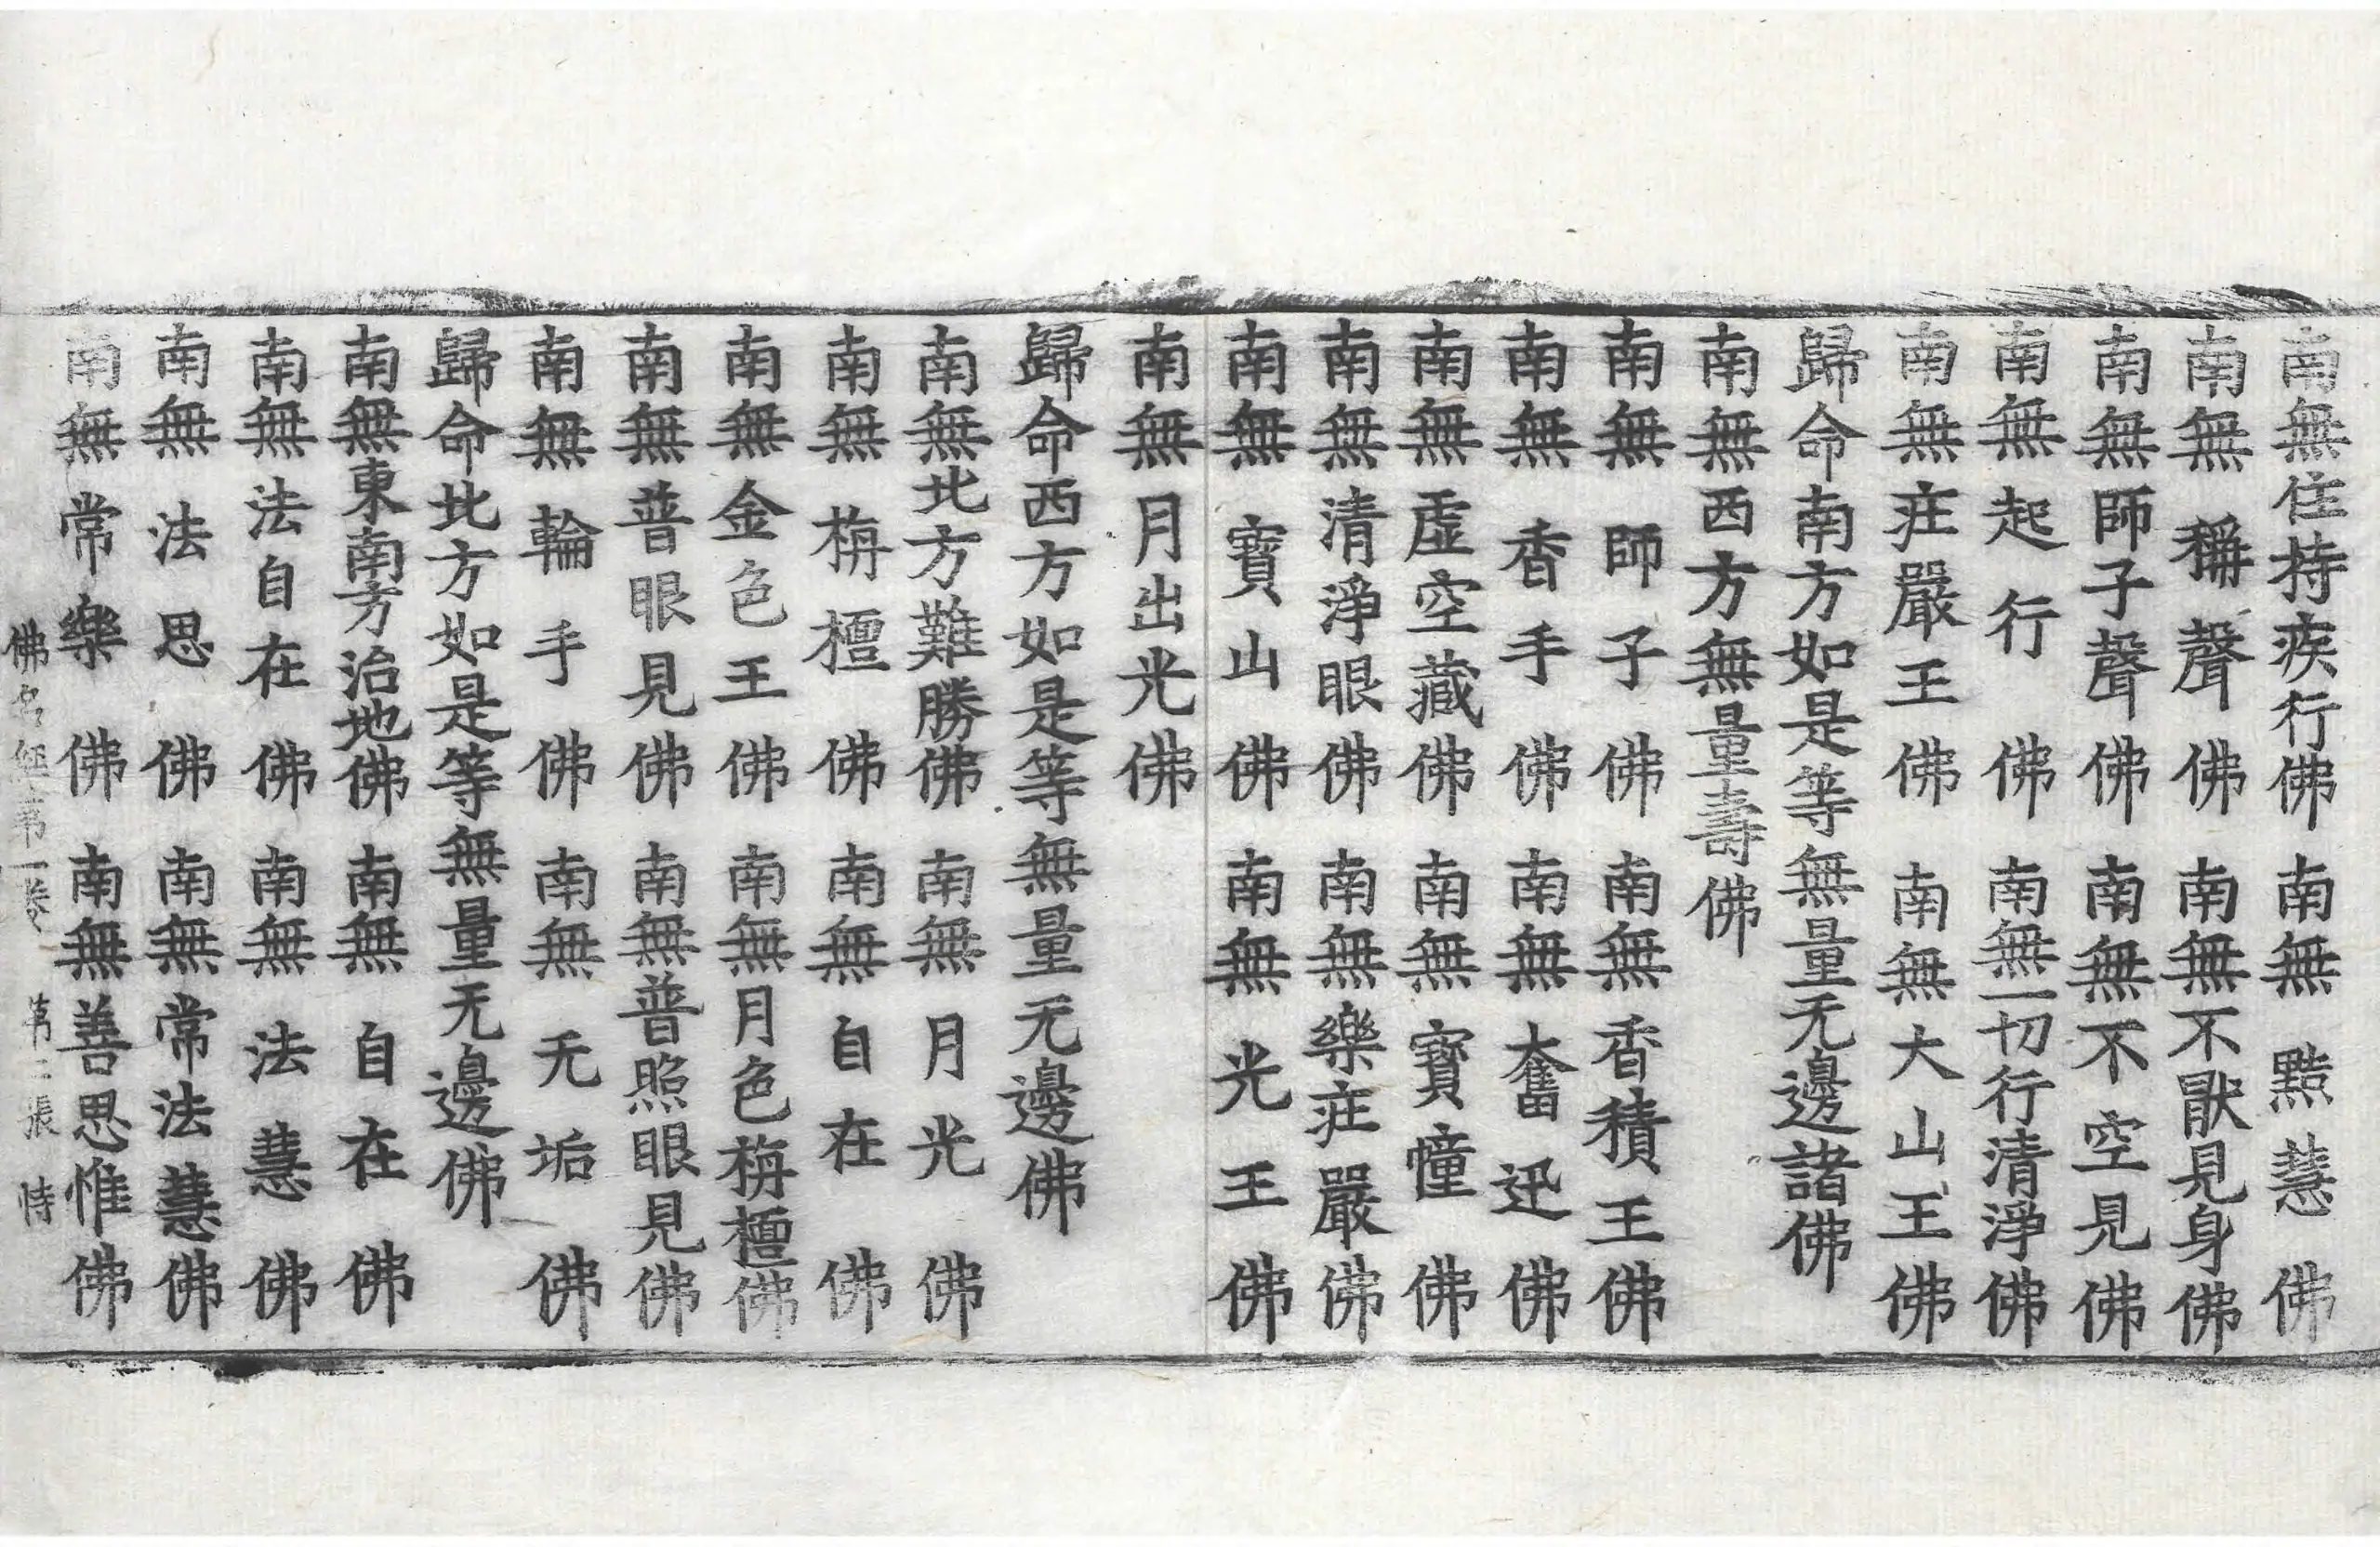 南無住持疾行佛 南無黠慧佛
南無稱聲佛 南無不猒見身佛
南無師子聲佛 南無不空見佛
南無起行佛 南無一切行清淨佛
南無莊嚴王佛 南無大山王佛
歸命南方如是等無量无邊諸佛
南無西方無量壽佛
南無師子佛 南無香積王佛
南無香手佛 南無奮迅佛
南無虛空藏佛 南無寶幢佛
南無清淨眼佛 南無樂莊嚴佛
南無寶山佛 南無光王佛
南無月出光佛
歸命西方如是等無量无邊佛
南無北方難勝佛 南無月光佛
南無栴檀佛 南無自在佛
南無金色王佛 南無月色栴檀佛
南無普眼見佛 南無普照眼見佛
南無輪手佛 南無无垢佛
歸命北方如是等無量无邊佛
南無東南方治地佛 南無自在佛
南無法自在佛 南無法慧佛
南無法思佛 南無常法慧佛
南無常樂佛 南無善思惟佛
佛名經第一卷 第二張 恃